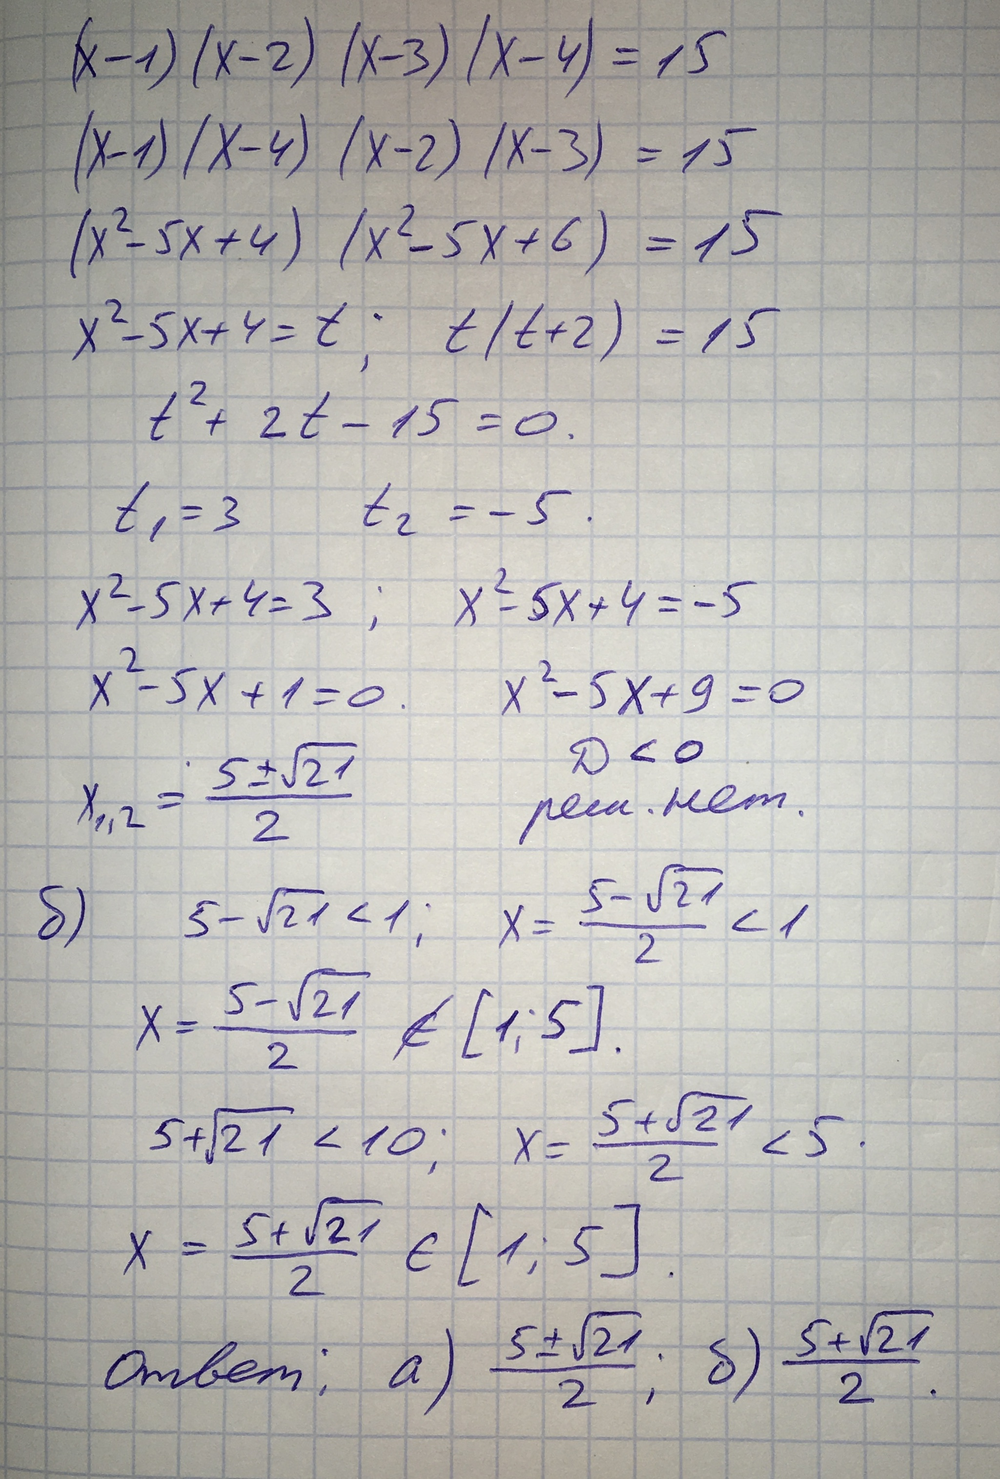 (x-1)(x-2)(x-3)(x-4)=15
(x-1)(x-4)(x-2)(x-3)=15
(x²-5x+4)(x²-5x+6)=15
x²-5x+4=t; t(t+2)=15
t²+2t-15=0.
t₁=3 t₂=-5.
x²-5x+4=3; x²-5x+4=-5
x²-5x+1=0. x²-5x+9=0
D<0
x₁,₂=(5±√21)/2 реш. нет.
б) 5-√21<1; x=(5-√21)/2<1
x=(5-√21)/2 ∉ [1;5].
5+√21<10; x=(5+√21)/2<5.
x=(5+√21)/2 ∈ [1;5].
Ответ: а) (5±√21)/2; б) (5+√21)/2.